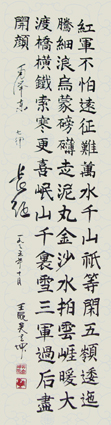 紅軍不怕遠征難萬水千山祇等閑五嶺逶迤
騰細浪烏蒙磅礴走泥丸金沙水拍雲崖暖大
渡橋橫鐵索寒更喜岷山千裏雪三軍過後盡
開顏
毛澤東
七律
長征
一九三五年十月